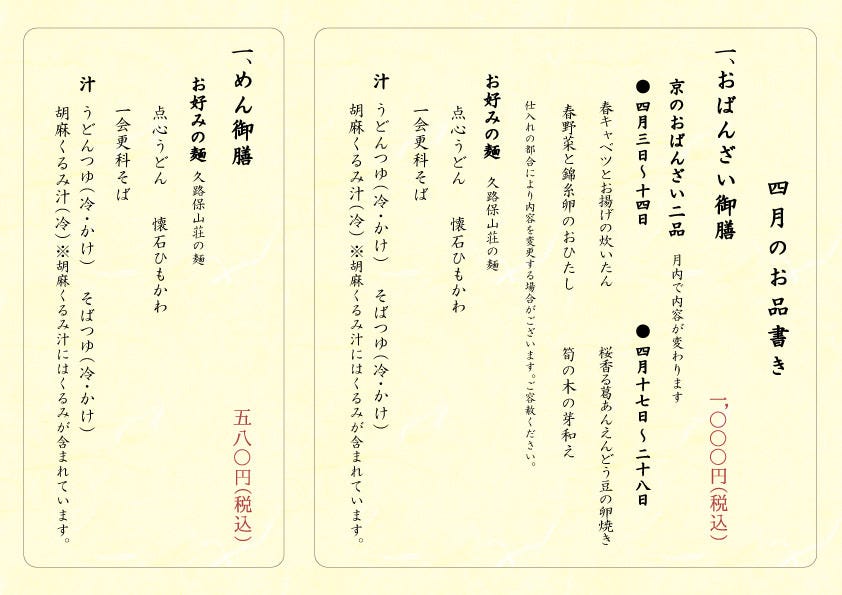 四月のお品書き
一、おばんざい御膳　一,〇〇〇円(税込)
京のおばんざい二品　月内で内容が変わります
●四月三日～十四日　●四月十七日～二十八日
春キャベツとお揚げの炊いたん　桜香る葛あんえんどう豆の卵焼き
春野菜と錦糸卵のおひたし　筍の木の芽和え
仕入れの都合により内容を変更する場合がございます。ご容赦ください。
お好みの麺　久路保山荘の麺
点心うどん　懐石ひもかわ
一会更科そば
汁　うどんつゆ(冷・かけ)　そばつゆ(冷・かけ)
胡麻くるみ汁(冷)※胡麻くるみ汁にはくるみが含まれています。
一、めん御膳　五八〇円(税込)
お好みの麺　久路保山荘の麺
点心うどん　懐石ひもかわ
一会更科そば
汁　うどんつゆ(冷・かけ)　そばつゆ(冷・かけ)
胡麻くるみ汁(冷)※胡麻くるみ汁にはくるみが含まれています。